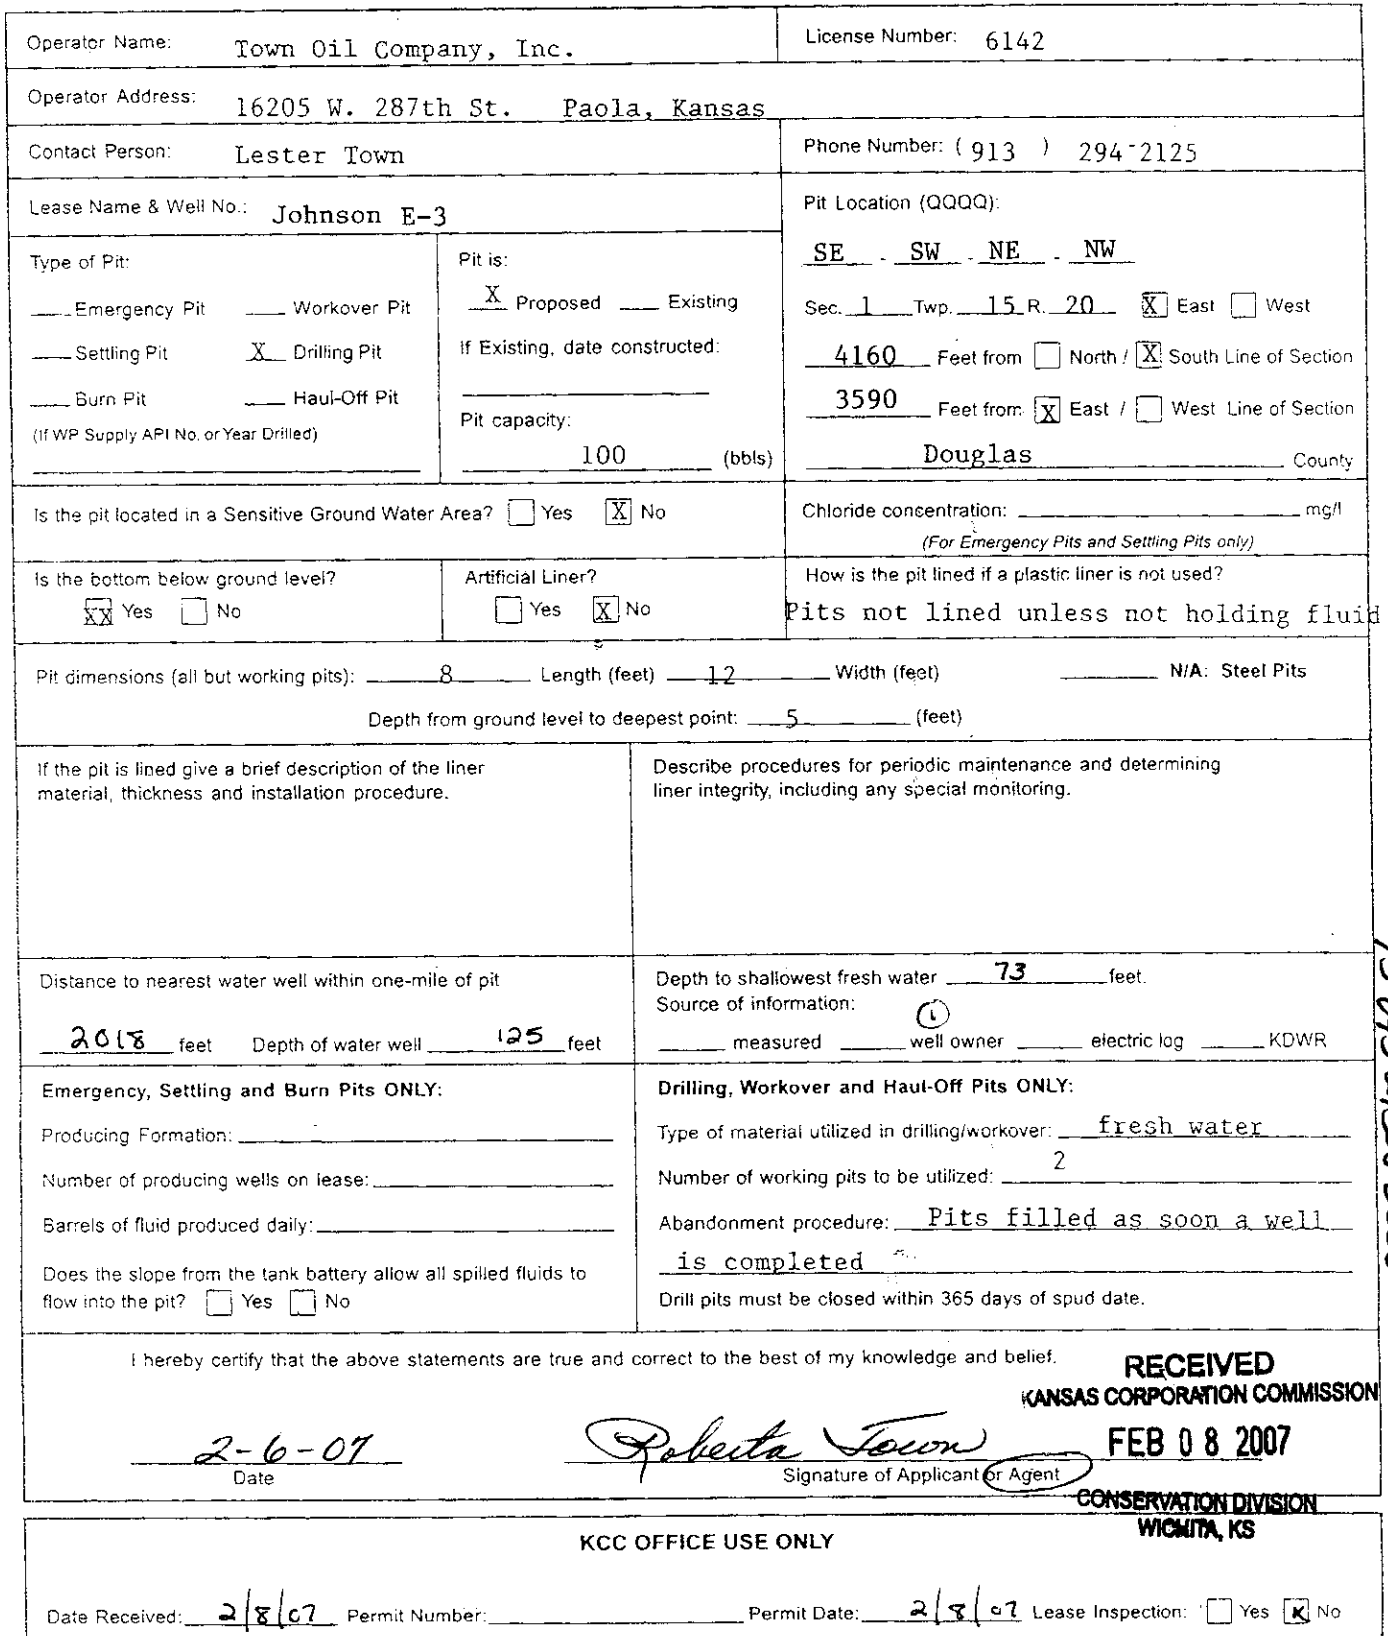 Operator Name: Town Oil Company, Inc. License Number: 6142
Operator Address: 16205 W. 287th St. Paola, Kansas
Contact Person: Lester Town Phone Number: ( 913 ) 294-2125
Lease Name & Well No.: Johnson E-3 Pit Location (QQQQ):
SE . SW . NE . NW
Type of Pit: Pit is:
Emergency Pit Workover Pit X Proposed Existing Sec. 1 Twp. 15 R. 20 X East West
Settling Pit X Drilling Pit If Existing, date constructed: 4160 Feet from North / X South Line of Section
Burn Pit Haul-Off Pit 3590 Feet from X East / West Line of Section
(If WP Supply API No. or Year Drilled) Pit capacity:
100 (bbls) Douglas County
Is the pit located in a Sensitive Ground Water Area? Yes X No Chloride concentration: mg/l
(For Emergency Pits and Settling Pits only)
Is the bottom below ground level? Artificial Liner? How is the pit lined if a plastic liner is not used?
XX Yes No Yes X No Pits not lined unless not holding fluid
Pit dimensions (all but working pits): 8 Length (feet) 12 Width (feet) N/A: Steel Pits
Depth from ground level to deepest point: 5 (feet)
If the pit is lined give a brief description of the liner
material, thickness and installation procedure.
Describe procedures for periodic maintenance and determining
liner integrity, including any special monitoring.
Distance to nearest water well within one-mile of pit
2018 feet Depth of water well 125 feet
Depth to shallowest fresh water 73 feet.
Source of information: 1
measured well owner electric log KDWR
Emergency, Settling and Burn Pits ONLY:
Producing Formation:
Number of producing wells on lease:
Barrels of fluid produced daily:
Does the slope from the tank battery allow all spilled fluids to
flow into the pit? Yes No
Drilling, Workover and Haul-Off Pits ONLY:
Type of material utilized in drilling/workover: fresh water
Number of working pits to be utilized: 2
Abandonment procedure: Pits filled as soon a well
is completed
Drill pits must be closed within 365 days of spud date.
I hereby certify that the above statements are true and correct to the best of my knowledge and belief.
RECEIVED
KANSAS CORPORATION COMMISSION
2-6-07 Roberta Town FEB 08 2007
Date Signature of Applicant or Agent
CONSERVATION DIVISION
WICHITA, KS
KCC OFFICE USE ONLY
Date Received: 2/8/07 Permit Number: Permit Date: 2/8/07 Lease Inspection: Yes X No